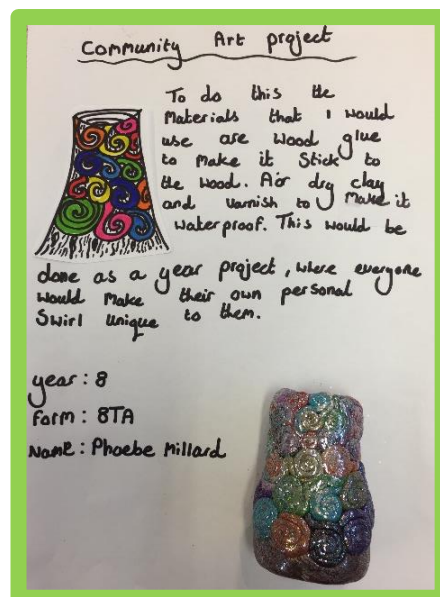 Community Art project
To do this the
Materials that I would
use are wood glue
to make it Stick to
the wood. Air dry clay
and varnish to make it
waterproof. This would be
done as a year project, where everyone
would make their own personal
Swirl unique to them.
year: 8
form: 8TA
Name: Phoebe Millard